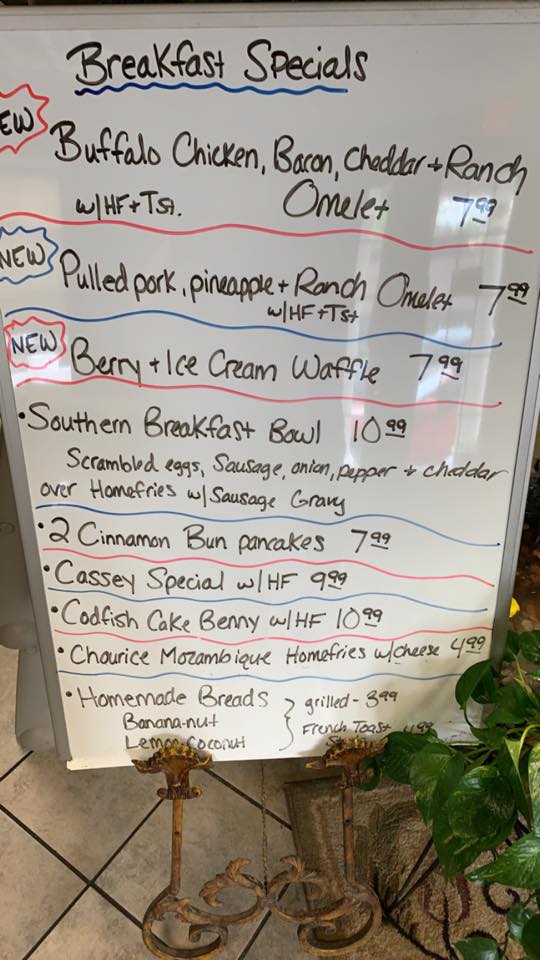 Breakfast Specials
NEW
Buffalo Chicken, Bacon, Cheddar + Ranch
w/HF + Tst. Omelet 7.99
NEW
Pulled pork, pineapple + Ranch Omelet 7.99
w/HF + Tst
NEW
Berry + Ice Cream Waffle 7.99
• Southern Breakfast Bowl 10.99
Scrambled eggs, Sausage, onion, pepper + cheddar
over Homefries w/Sausage Gravy
• 2 Cinnamon Bun pancakes 7.99
• Cassey Special w/HF 9.99
• Codfish Cake Benny w/HF 10.99
• Chourice Mozambique Homefries w/cheese 4.99
• Homemade Breads } grilled - 3.99
Banana-nut French Toast 4.99
Lemon Coconut